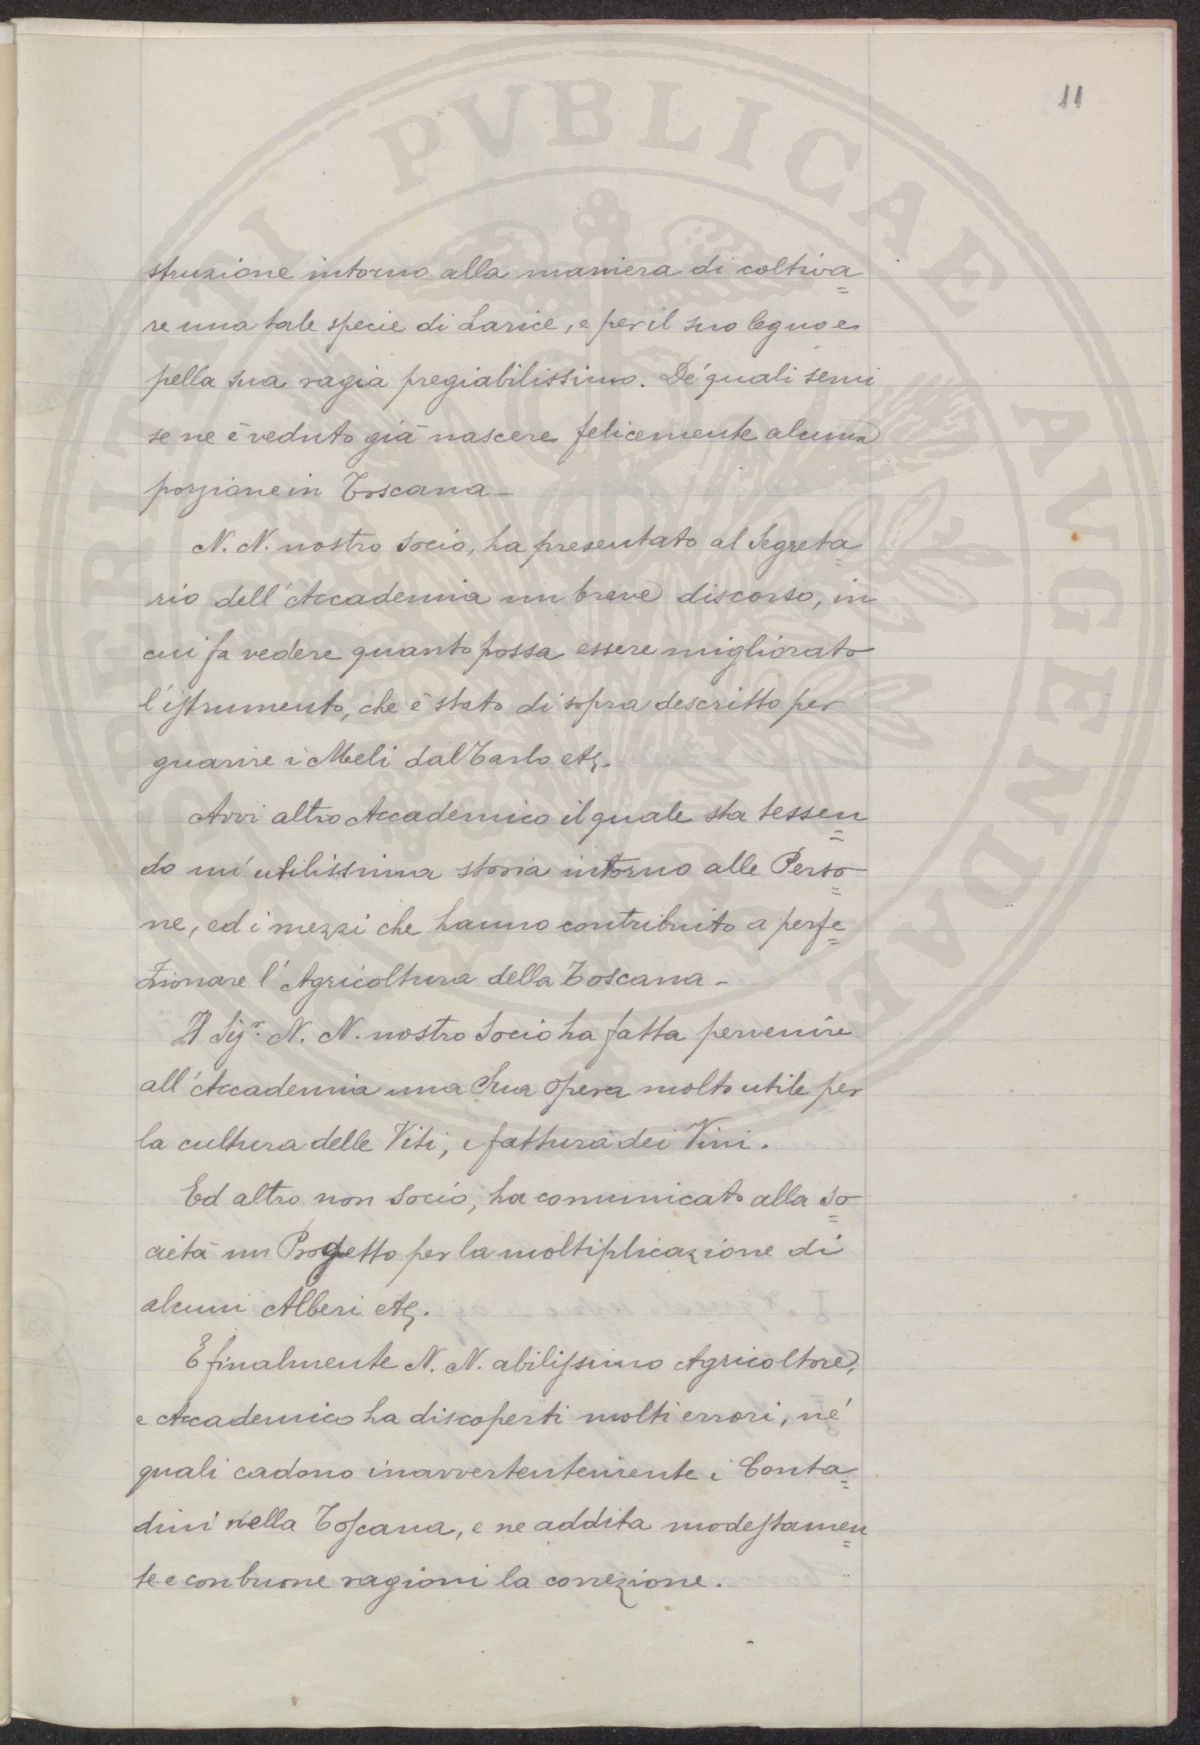 11
struzione intorno alla maniera di coltiva=
re una tale specie di Larice, e per il suo legno e
pella sua ragia pregiabilissimo. De' quali semi
se ne è veduto già nascere felicemente alcuna
porzione in Toscana_
N. N. nostro Socio, ha presentato al Segreta
rio dell'Accademia un breve discorso, in
cui fa vedere quanto possa essere migliorato
l'istrumento, che è stato di sopra descritto per
guarire i Meli dal Tarlo etc.
Avvi altro Accademico il quale sta tessen=
do un'utilissima storia intorno alle Perso=
ne, ed i mezzi che hanno contribuito a perfe=
zionare l'Agricoltura della Toscana_
Il Sig.r N. N. nostro Socio ha fatta pervenire
all'Accademia una Sua opera molto utile per
la cultura delle Viti, e fattura dei Vini.
Ed altro non Socio, ha comunicato alla So=
cietà un Progetto per la moltiplicazione di
alcuni Alberi etc.
E finalmente N. N. abilissimo Agricoltore,
e Accademico ha discoperti molti errori, ne'
quali cadono inavvertentemente i Conta=
dini nella Toscana, e ne addita modestamen=
te e con buone ragioni la correzione.
PVBLICAE AVGENDAE